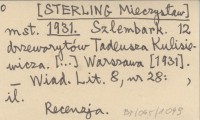 [STERLING Mieczysław]
mst. 1931. Szlembark. 12
drzeworytów Tadeusza Kulisie-
wicza. [...] Warszawa [1931].
— Wiad. Lit. 8, nr 28: ,
il.
Recenzja.